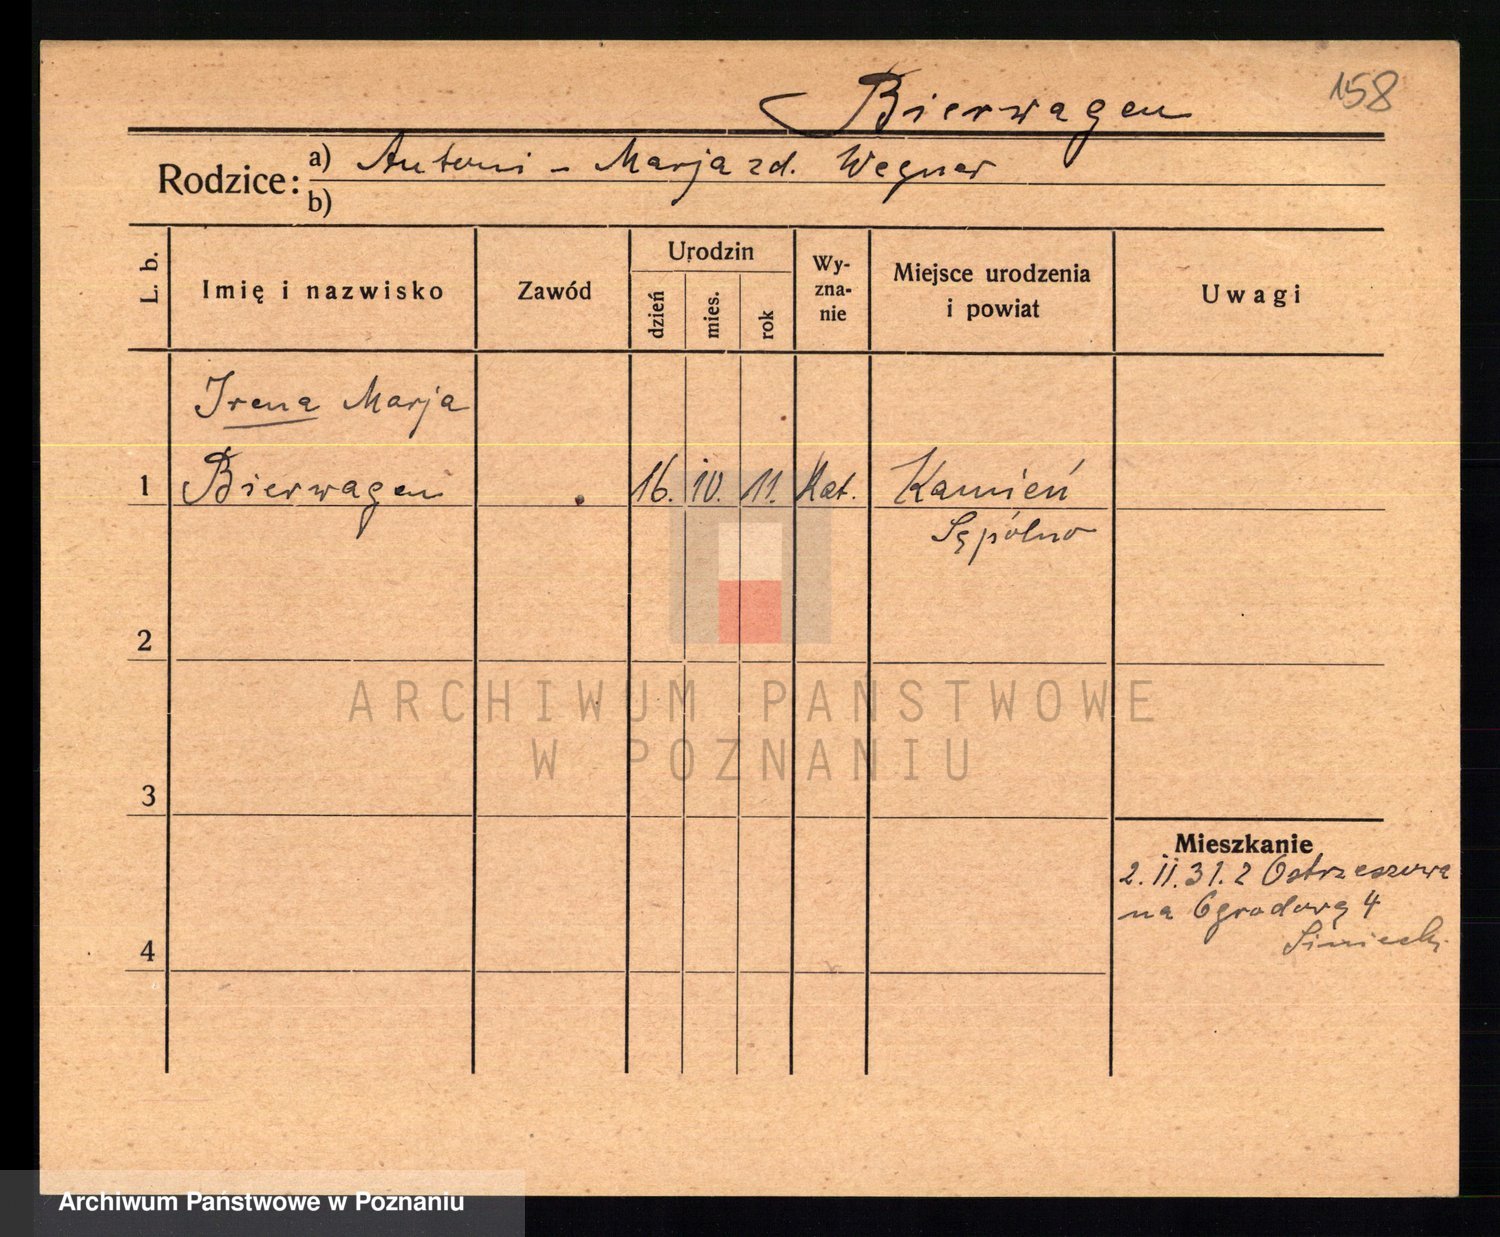 158
Bierwagen
Rodzice: a) Antoni - Marja zd. Wegner
b)
L. b.
Imię i nazwisko
Zawód
Urodzin
dzień
mies.
rok
Wy-
zna-
nie
Miejsce urodzenia
i powiat
Uwagi
Irena Marja
1 Bierwagen 16. IV. 11. Kat. Kamień
Sępólno
2
3
4
Mieszkanie
2. II. 31. z Ostrzeszowa
na Ogrodową 4
ARCHIWUM PAŃSTWOWE
W POZNANIU
Archiwum Państwowe w Poznaniu